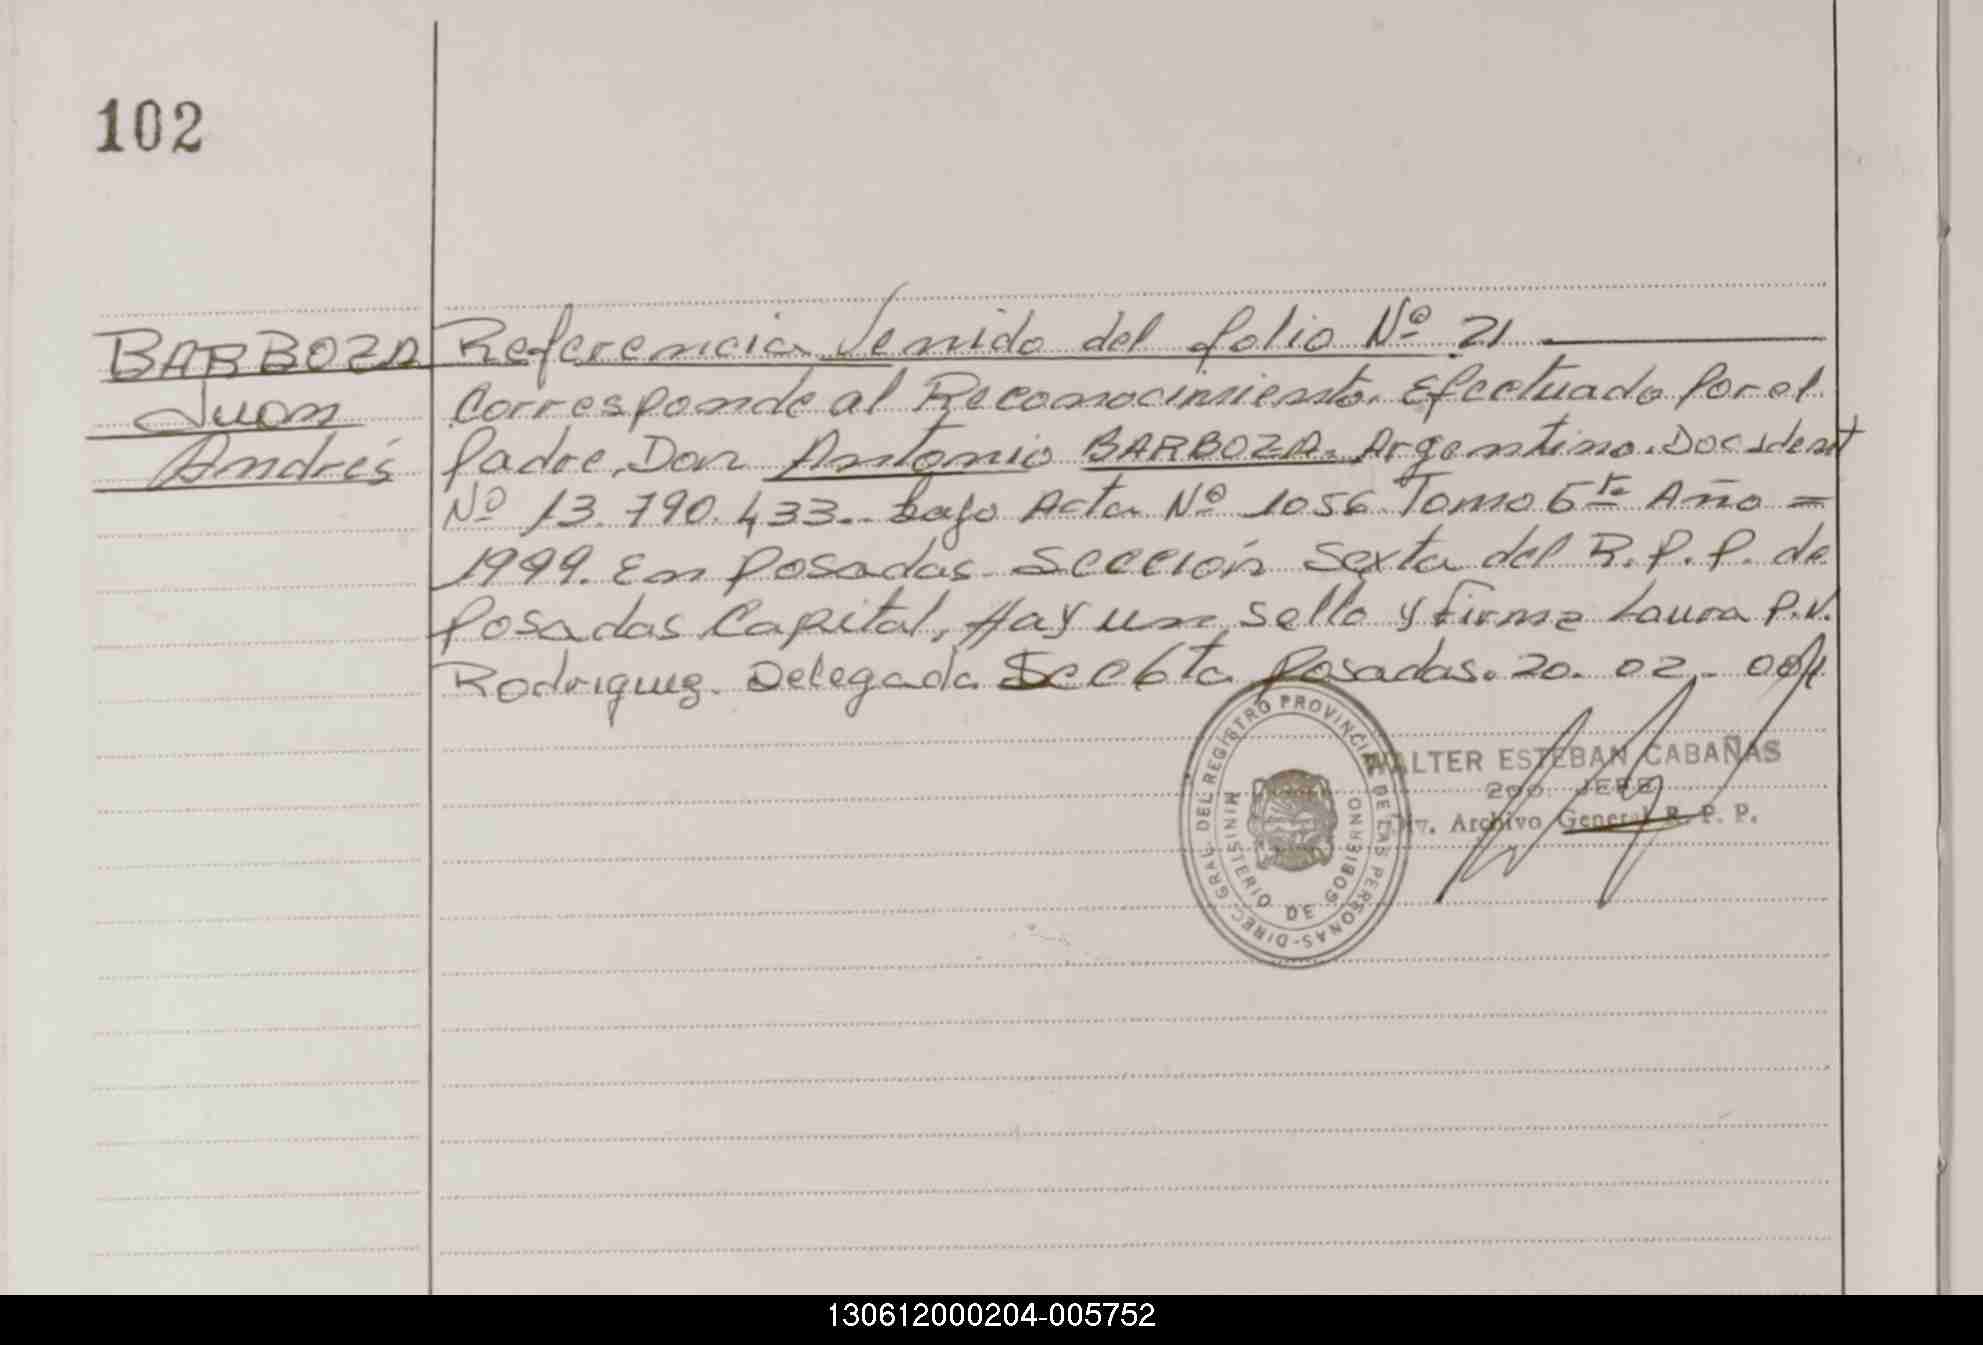 102
BARBOZA
Juan
Andrés
Referencia Venido del folio Nº 21
Corresponde al Reconocimiento. Efectuado Por el
Padre, Don Antonio BARBOZA. Argentino. Doc ident
Nº 13.790.433.. bajo Acta Nº 1056. Tomo 6to Año =
1999. En Posadas. Sección Sexta del R.P.P. de
Posadas Capital, Hay un Sello y firma Laura P.V.
Rodriguez. Delegada Sec 6ta Posadas. 20. 02.
WALTER ESTEBAN CABAÑAS
2do. JEFE
Div. Archivo General R. P. P.
DIREC. GRAL. DEL REGISTRO PROVINCIAL DE LAS PERSONAS-
MINISTERIO DE GOBIERNO
130612000204-005752